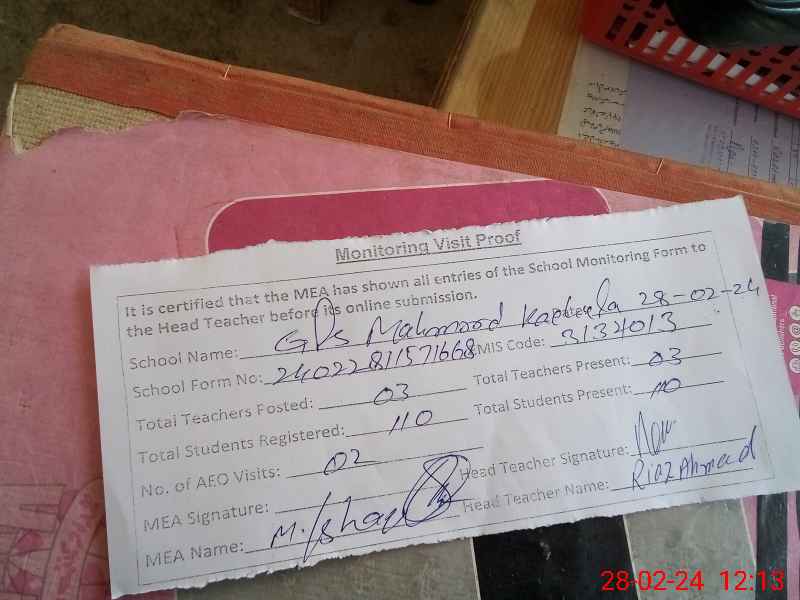 Monitoring Visit Proof
It is certified that the MEA has shown all entries of the School Monitoring Form to
the Head Teacher before its online submission.
School Name: GPS Mahmood 28-02-24
School Form No: 24022811571668 MIS Code: 3134013
Total Teachers Posted: 03 Total Teachers Present: 03
Total Students Registered: 110 Total Students Present: 110
No. of AEO Visits: 02 Head Teacher Signature:
MEA Signature: Head Teacher Name: Riaz Ahmad
MEA Name: M.
28-02-24 12:13